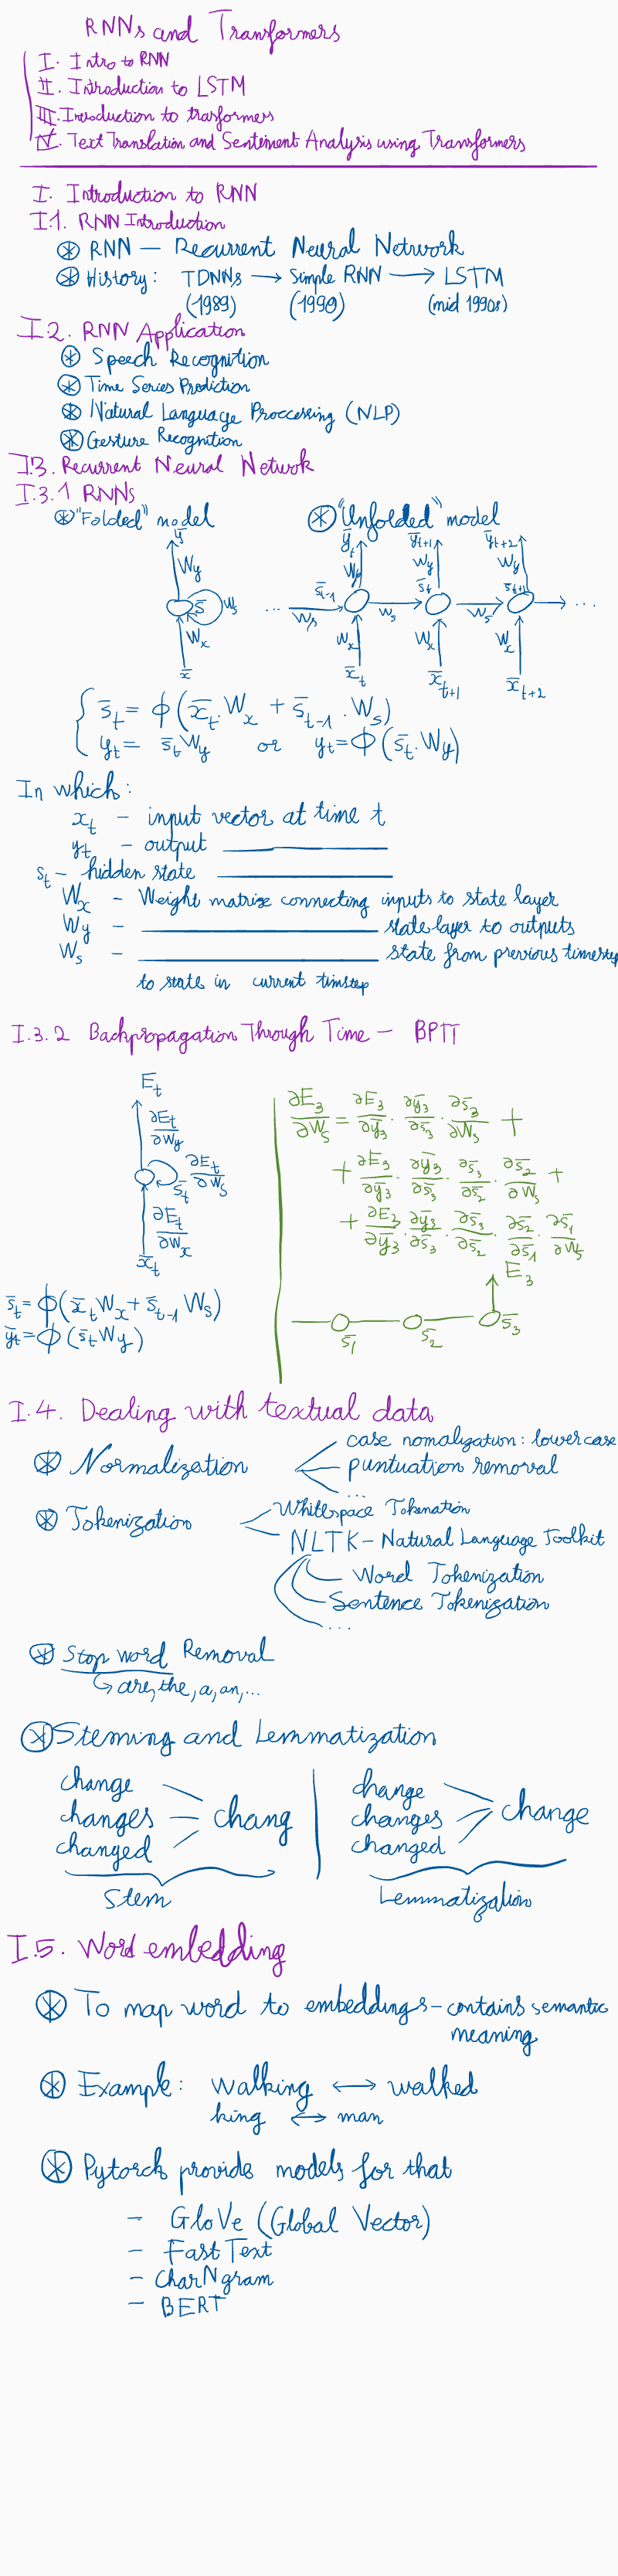 RNNs and Transformers
I. Intro to RNN
II. Introduction to LSTM
III. Introduction to trasformers
IV. Text Translation and Sentiment Analysis using Transformers
I. Introduction to RNN
I.1. RNN Introduction
RNN — Recurrent Neural Network
History: TDNNs → Simple RNN → LSTM
(1989) (1990) (mid 1990s)
I.2. RNN Application
Speech Recognition
Time Series Prediction
Natural Language Proccessing (NLP)
Gesture Recognition
I.3. Recurrent Neural Network
I.3.1 RNNs
"Folded" model
"Unfolded" model
ȳ
W_y
s̄ W_s
W_x
x̄
ȳ_t ȳ_t+1 ȳ_t+2
W_y W_y W_y
s̄_t-1 s̄_t s̄_t+1
... W_s W_s W_s ...
W_x W_x W_x
x̄_t x̄_t+1 x̄_t+2
s̄_t = ϕ(x̄_t . W_x + s̄_t-1 . W_s)
y_t = s̄_t W_y or y_t = ϕ(s̄_t . W_y)
In which:
x_t – input vector at time t
y_t – output
s_t – hidden state
W_x – Weight matrix connecting inputs to state layer
W_y – state layer to outputs
W_s – state from previous timestep
to state in current timstep
I.3.2 Backpropagation Through Time – BPTT
E_t
∂E_t/∂W_y
s̄_t ∂E_t/∂W_s
∂E_t/∂W_x
x̄_t
s̄_t = ϕ(x̄_t W_x + s̄_t-1 W_s)
ȳ_t = ϕ(s̄_t W_y)
∂E_3/∂W_s = ∂E_3/∂ȳ_3 . ∂ȳ_3/∂s̄_3 . ∂s̄_3/∂W_s +
+ ∂E_3/∂ȳ_3 . ∂ȳ_3/∂s̄_3 . ∂s̄_3/∂s̄_2 . ∂s̄_2/∂W_s +
+ ∂E_3/∂ȳ_3 . ∂ȳ_3/∂s̄_3 . ∂s̄_3/∂s̄_2 . ∂s̄_2/∂s̄_1 . ∂s̄_1/∂W_s
E_3
s̄_1 s̄_2 s̄_3
I.4. Dealing with textual data
Normalization
case nomalization: lowercase
puntuation removal
...
Tokenization
Whitespace Tokenation
NLTK – Natural Language Toolkit
Word Tokenization
Sentence Tokenization
...
Stop word Removal
are, the, a, an, ...
Steming and Lemmatization
change
changes chang
changed
Stem
change
changes change
changed
Lemmatization
I.5. Word embedding
To map word to embeddings – contains semantic
meaning
Example: walking ↔ walked
king ↔ man
Pytorch provide models for that
– GloVe (Global Vector)
– FastText
– CharNgram
– BERT